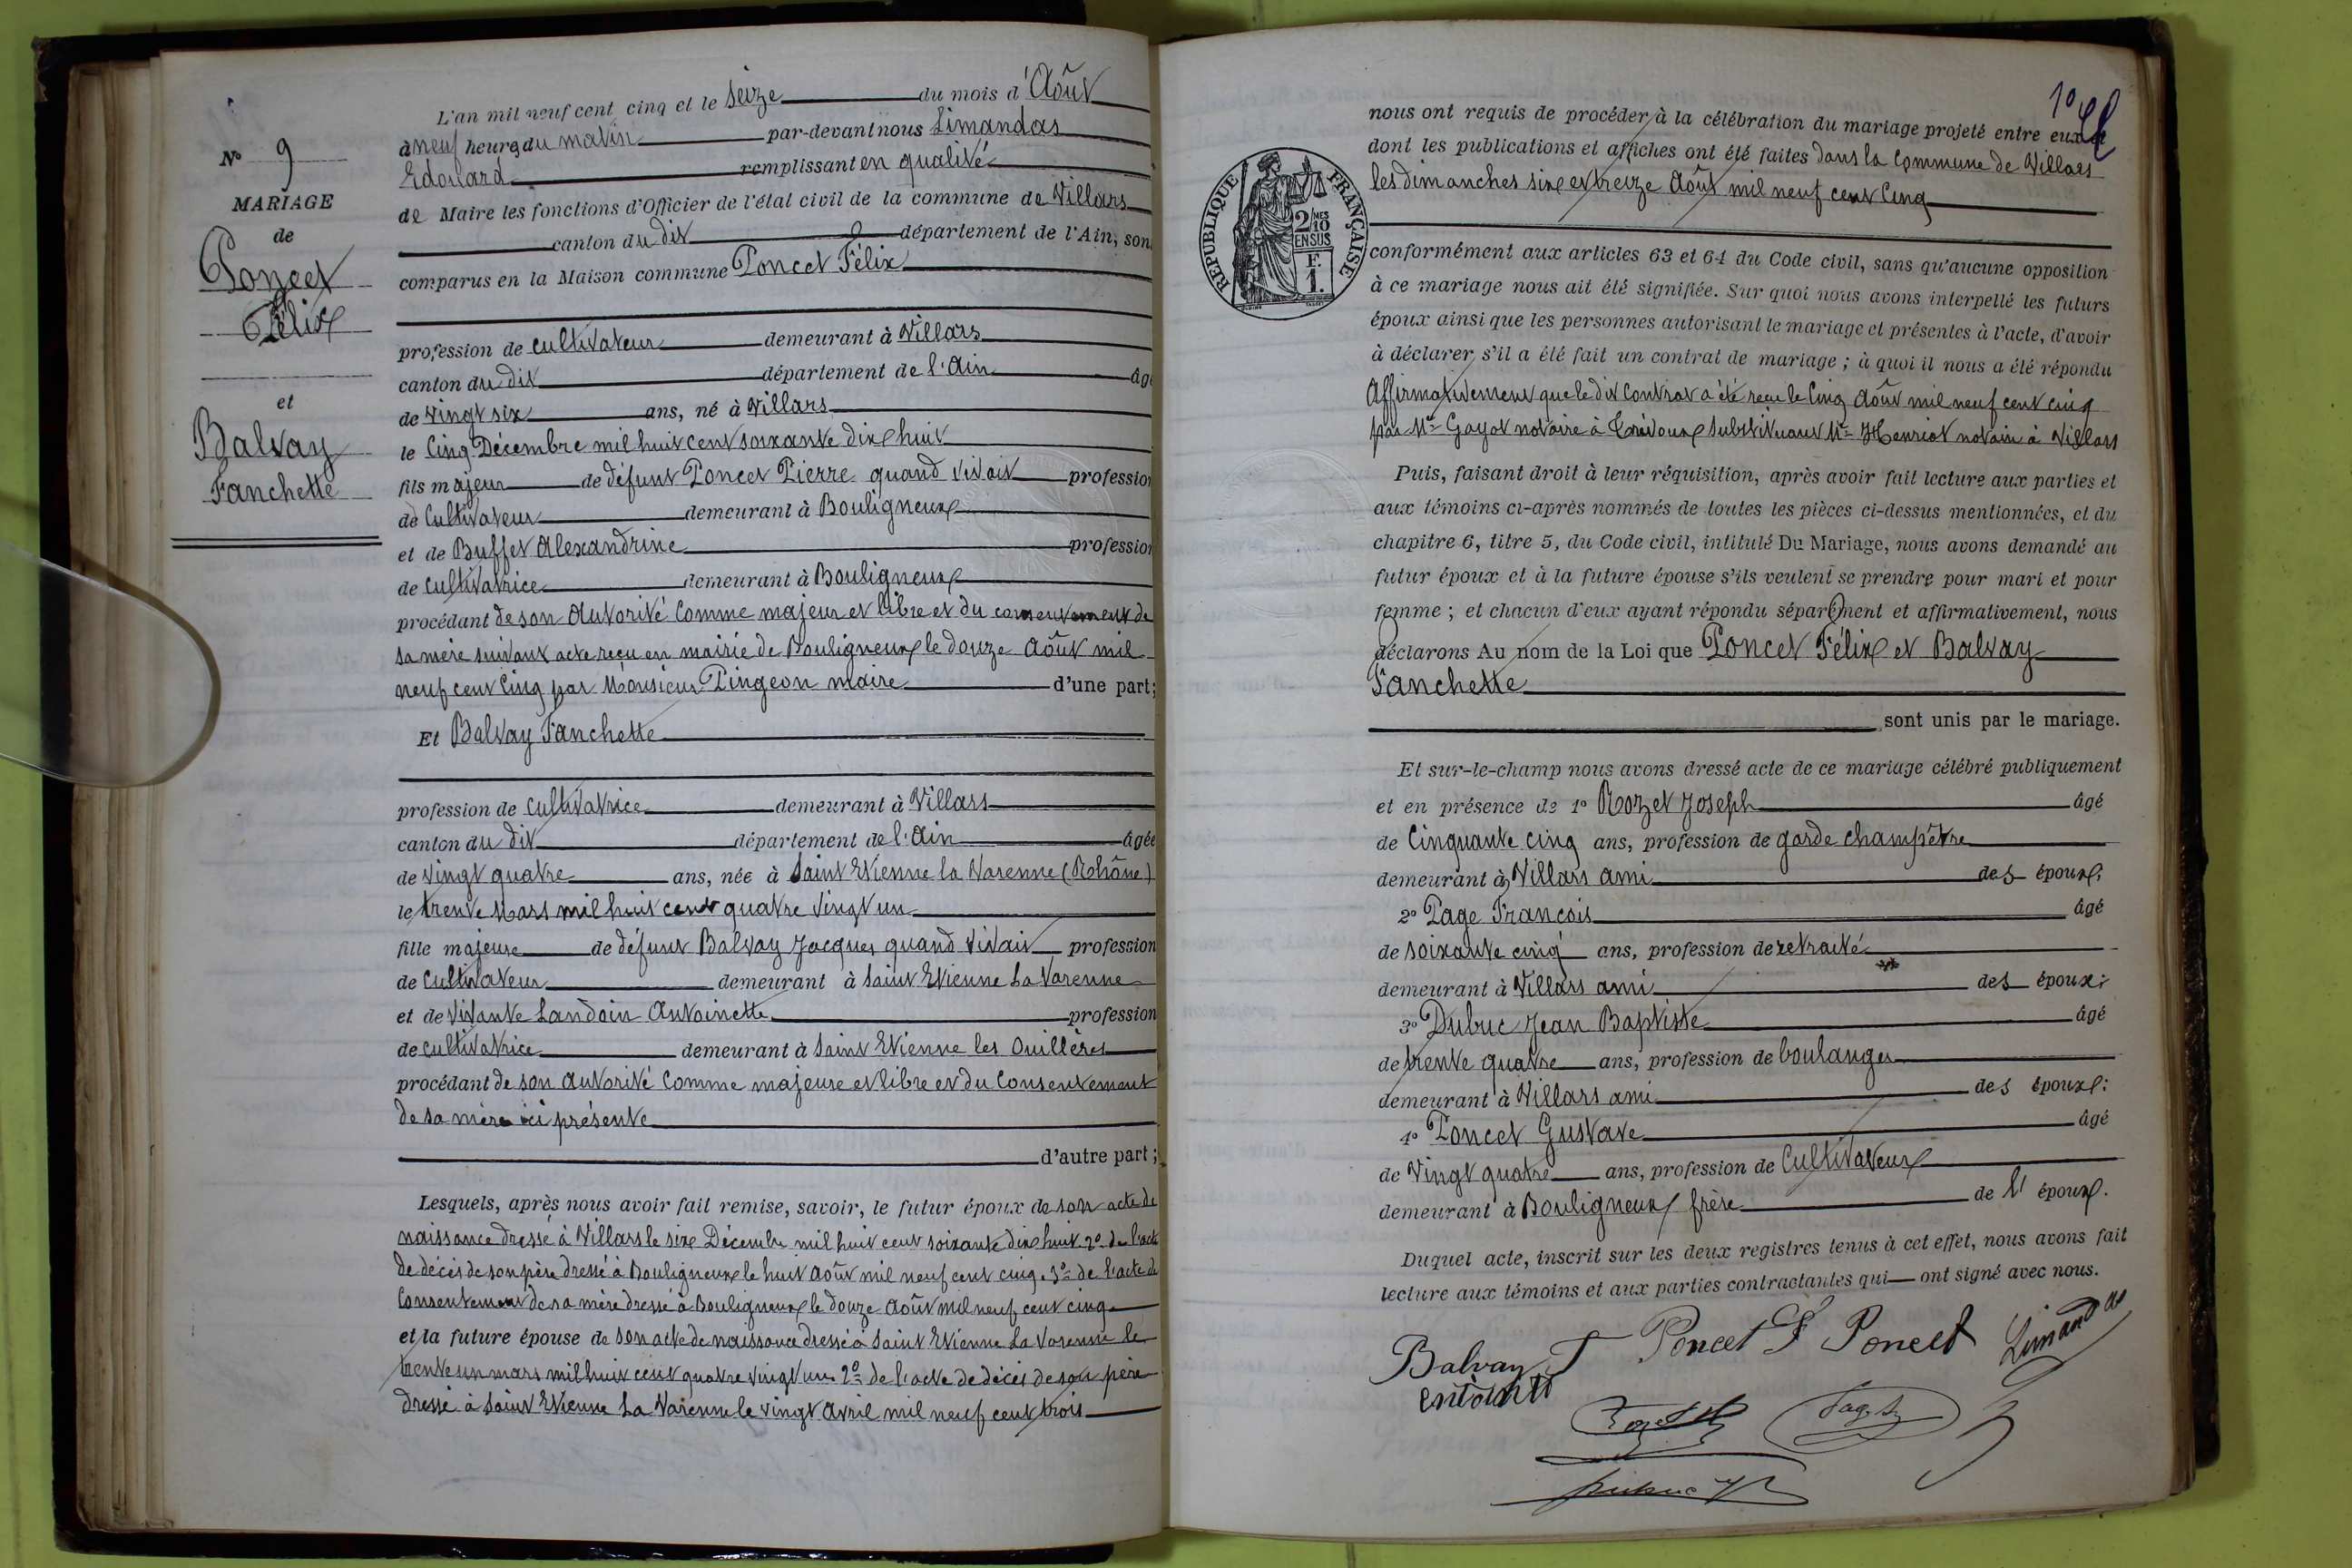 N° 9
MARIAGE
de
Poncet
Félix
et
Balvay
Fanchette
L'an mil neuf cent cinq et le seize du mois d'Août
à neuf heures du matin par-devant nous Limandas
Edouard remplissant en qualité
de Maire les fonctions d'Officier de l'état civil de la commune de Villars
canton du dit département de l'Ain, son
comparus en la Maison commune Poncet Félix
profession de cultivateur demeurant à Villars
canton du dit département de l'Ain âgé
de vingt six ans, né à Villars
le Cinq Décembre mil huit cent soixante dix huit
fils majeur de défunt Poncet Pierre quand vivait profession
de Cultivateur demeurant à Bouligneux
et de Buffet Alexandrine profession
de cultivatrice demeurant à Bouligneux
procédant de son autorité comme majeur et libre et du consentement de
sa mère suivant acte reçu en mairie de Bouligneux le douze Août mil
neuf cent cinq par Monsieur Pingeon maire d'une part;
Et Balvay Fanchette
profession de cultivatrice demeurant à Villars
canton du dit département de l'Ain âgée
de vingt quatre ans, née à Saint Etienne la Varenne (Rhône)
le trente Mars mil huit cent quatre vingt un
fille majeure de défunt Balvay Jacques quand vivait profession
de Cultivateur demeurant à Saint Etienne La Varenne
et de vivante Landoin Antoinette profession
de cultivatrice demeurant à Saint Etienne les Ouillères
procédant de son autorité comme majeure et libre et du consentement
de sa mère ici présente
d'autre part;
Lesquels, après nous avoir fait remise, savoir, le futur époux de son acte de
naissance dressé à Villars le six Décembre mil huit cent soixante dix huit 2° de l'acte
de décès de son père dressé à Bouligneux le huit Août mil neuf cent cinq. 3° de l'acte de
consentement de sa mère dressé à Bouligneux le douze Août mil neuf cent cinq
et la future épouse de son acte de naissance dressé à Saint Etienne La Varenne le
trente un mars mil huit cent quatre vingt un. 2° de l'acte de décès de son père
dressé à Saint Etienne La Varenne le vingt Avril mil neuf cent trois
10
RÉPUBLIQUE FRANÇAISE
2/10MES
EN SUS
F.
1.
nous ont requis de procéder à la célébration du mariage projeté entre eux
dont les publications et affiches ont été faites dans la Commune de Villars
les dimanches six et treize Août mil neuf cent Cinq
conformément aux articles 63 et 64 du Code civil, sans qu'aucune opposition
à ce mariage nous ait été signifiée. Sur quoi nous avons interpellé les futurs
époux ainsi que les personnes autorisant le mariage et présentes à l'acte, d'avoir
à déclarer s'il a été fait un contrat de mariage ; à quoi il nous a été répondu
Affirmativement que le dit Contrat a été reçu le Cinq Août mil neuf cent cinq
par Me Gayot notaire à Trévoux substituant Me Henriot notaire à Villars
Puis, faisant droit à leur réquisition, après avoir fait lecture aux parties et
aux témoins ci-après nommés de toutes les pièces ci-dessus mentionnées, et du
chapitre 6, titre 5, du Code civil, intitulé Du Mariage, nous avons demandé au
futur époux et à la future épouse s'ils veulent se prendre pour mari et pour
femme ; et chacun d'eux ayant répondu séparément et affirmativement, nous
déclarons Au nom de la Loi que Poncet Félix et Balvay
Fanchette
sont unis par le mariage.
Et sur-le-champ nous avons dressé acte de ce mariage célébré publiquement
et en présence de 1° Rozet Joseph âgé
de Cinquante cinq ans, profession de garde champêtre
demeurant à Villars ami des époux;
2° Page François âgé
de soixante cinq ans, profession de retraité
demeurant à Villars ami des époux;
3° Dubuc Jean Baptiste âgé
de trente quatre ans, profession de boulanger
demeurant à Villars ami des époux;
4° Poncet Gustave âgé
de vingt quatre ans, profession de Cultivateur
demeurant à Bouligneux frère de l'époux.
Duquel acte, inscrit sur les deux registres tenus à cet effet, nous avons fait
lecture aux témoins et aux parties contractantes qui ont signé avec nous.
Balvay F Poncet F Poncet Limandas